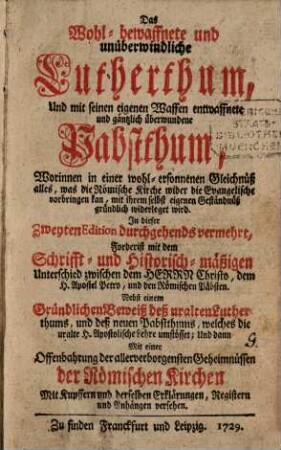 Das
Wohl-bewaffnete und
unüberwindliche
Lutherthum,
Und mit seinen eigenen Waffen entwaffnete
und gäntzlich überwundene
Pabstthum,
Worinnen in einer wohl-ersonnenen Gleichnüß
alles, was die Römische Kirche wider die Evangelische
vorbringen kan, mit ihrem selbst eigenen Geständnüß
gründlich widerleget wird.
In dieser
Zweyten Edition durchgehends vermehrt,
Forderist mit dem
Schrifft- und Historisch-mäßigen
Unterschied zwischen dem HERRN Christo, dem
H. Apostel Petro, und den Römischen Päbsten.
Nebst einem
Gründlichen Beweiß deß uralten Luther-
thums, und deß neuen Pabstthums, welches die
uralte H. Apostolische Lehre umstösset; Und dann
Mit einer
Offenbahrung der allerverborgensten Geheimnüssen
der Römischen Kirchen
Mit Kupffern und derselben Erklärungen, Registern
und Anhängen versehen.
Zu finden Franckfurt und Leipzig. 1729.